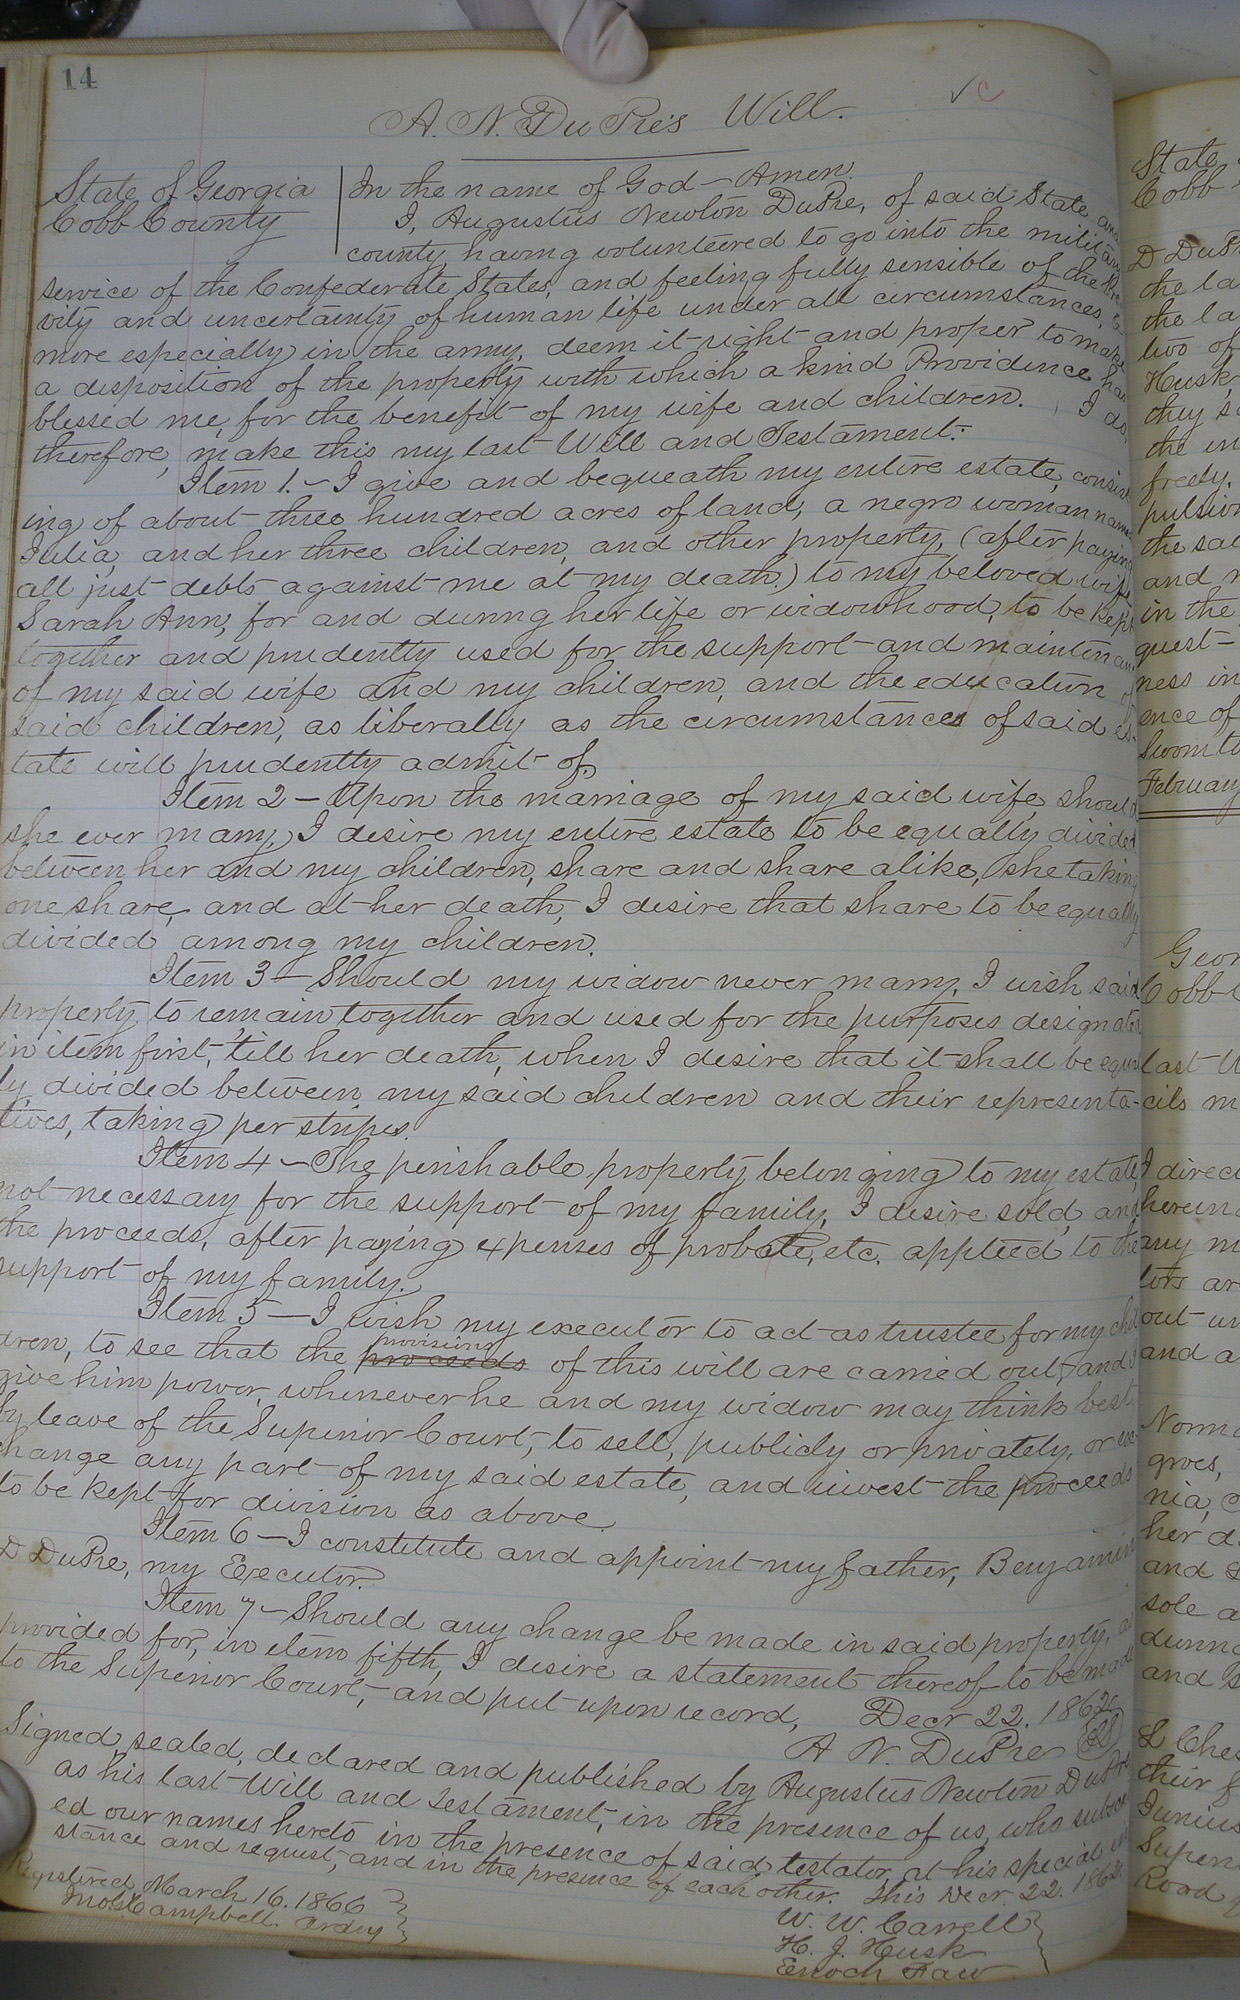 14
A. N. DuPre's Will.
State of Georgia
Cobb County
In the name of God – Amen.
I, Augustus Newton DuPre, of said State and
county having volunteered to go into the military
service of the Confederate States, and feeling fully sensible of the
vity and uncertainty of human life under all circumstances, &
more especially in the army, deem it right and proper to make
a disposition of the property with which a kind Providence has
blessed me, for the benefit of my wife and children. I do,
therefore, make this my last Will and Testament:
Item 1. – I give and bequeath my entire estate, consist
ing of about three hundred acres of land, a negro woman name
Julia, and her three children, and other property, (after paying
all just debts against me at my death,) to my beloved wife
Sarah Ann, for and during her life or widowhood, to be kept
together and prudently used for the support and maintenan
of my said wife and my children, and the education of
said children, as liberally as the circumstances of said es-
tate will prudently admit of.
Item 2 – Upon the marriage of my said wife, should
she ever marry, I desire my entire estate to be equally divided
between her and my children, share and share alike, she taking
one share, and at her death, I desire that share to be equally
divided among my children.
Item 3 – Should my widow never marry, I wish said
property to remain together and used for the purposes designated
in item first, till her death, when I desire that it shall be equal
ly divided between my said children and their representa-
tives, taking per stripes.
Item 4 – The perishable property belonging to my estate,
not necessary for the support of my family, I desire sold, and
the proceeds, after paying expenses of probate, etc. applied to the
support of my family.
Item 5 – I wish my executor to act as trustee for my chil
dren, to see that the proceeds provisions of this will are carried out, and I
give him power, whenever he and my widow may think best
by leave of the Superior Court, to sell, publicly or privately, or ex
change any part of my said estate, and invest the proceeds
to be kept for division as above.
Item 6 – I constitute and appoint my father, Benjamin
D DuPre, my Executor.
Item 7 – Should any change be made in said property, as
provided for, in item fifth, I desire a statement thereof to be made
to the Superior Court, and put upon record, Decr 22. 1862
A N. DuPre LS
Signed, sealed, declared and published by Augustus Newton DuPre
as his last Will and Testament, in the presence of us, who subscri
ed our names hereto in the presence of said testator, at his special in
stance and request, and in the presence of each other. This Decr. 22. 1862.
W. W. Carrell
H. J. Husk
Enoch Faw
Registered March 16. 1866
Campbell. Ordy
State
Cobb
D DuPr
the la
the la
two of
Husk,
they s
the in
freely.
pulsion
the sai
and
in the
quest
ness in
ence of
Sworn to
February
Geor
Cobb
last W
cils m
I direc
herein
any m
tors ar
out un
and a
Norm
groes,
nia,
her d
and
sole a
during
and
L Ches
their f
Junius
Superi
Road